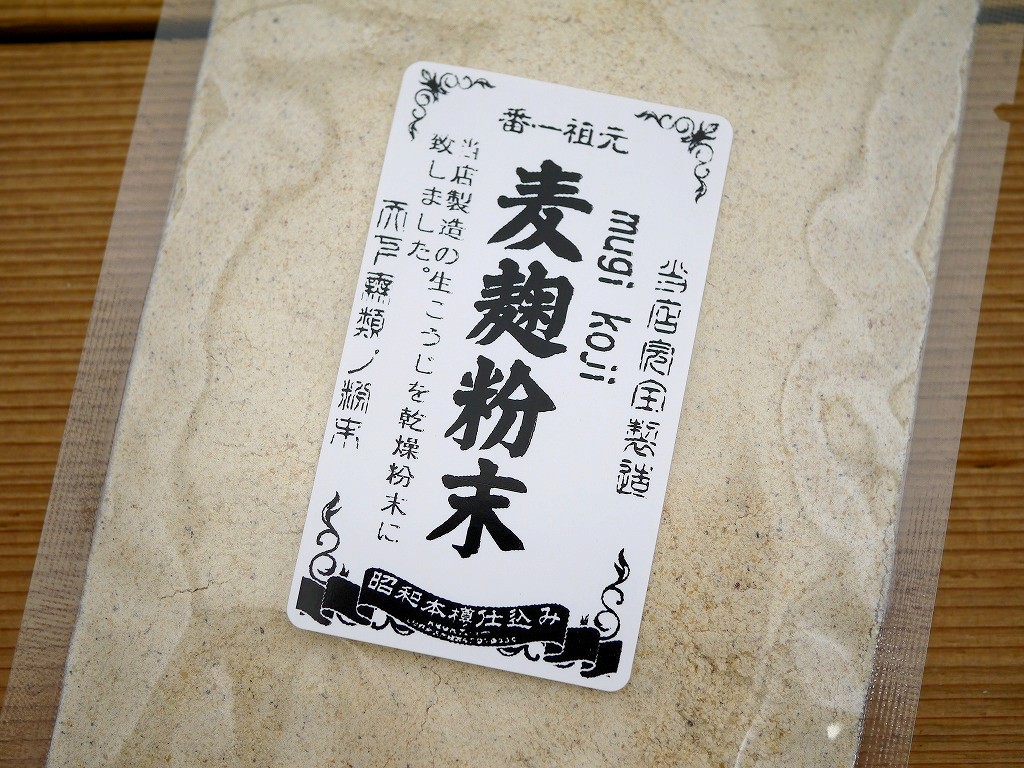 番一祖元
当店完全製造
mugi koji
麦麹粉末
当店製造の生こうじを乾燥粉末に
致しました。
粉末
昭和本樽仕込み